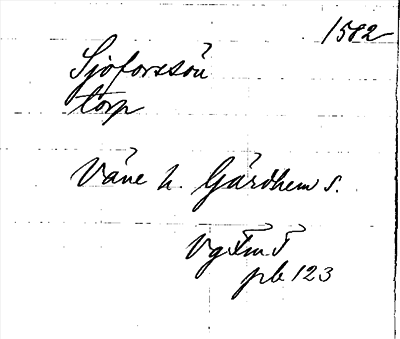 1582
Sjöforssön
torp
Väne h. Gärdhem s.
Vg Fm T
pb 123